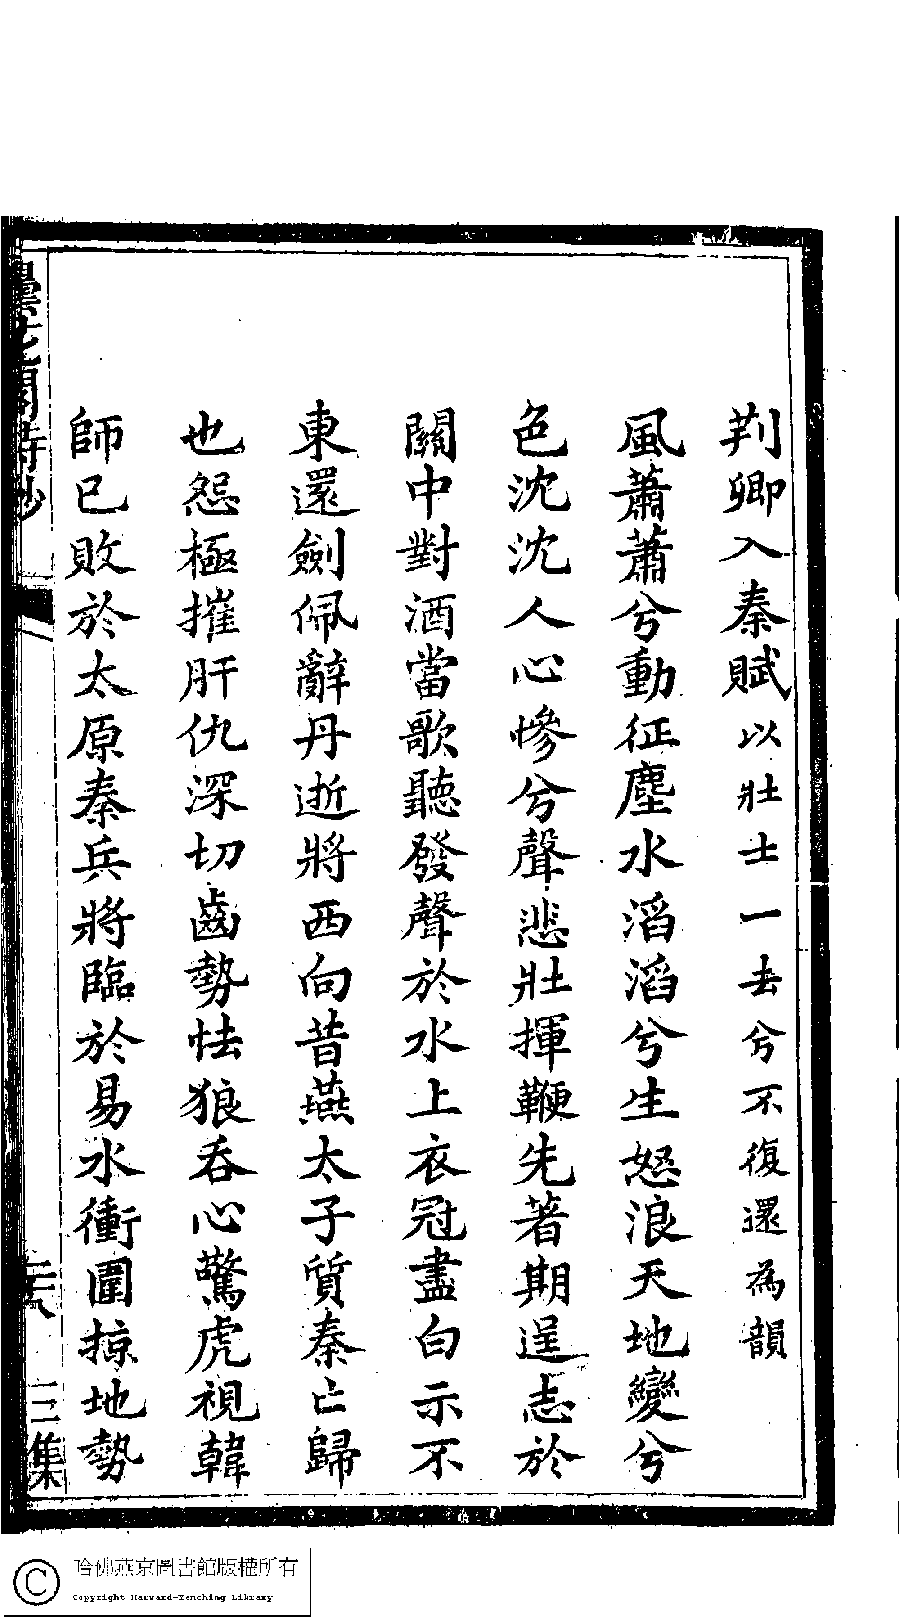 荆卿入秦賦以壯士一去兮不復還為韻
風蕭蕭兮動征塵水滔滔兮生怒浪天地變兮
色沈沈人心慘兮聲悲壯揮鞭先著期逞志於
關中對酒當歌聽發聲於水上衣冠盡白示不
東還劍佩辭丹逝將西向昔燕太子質秦亡歸
也怨極摧肝仇深切齒勢怯狼吞心驚虎視韓
師已敗於太原秦兵將臨於易水衝圍掠地勢
曇花閣詩鈔
三集
哈佛燕京圖書館版權所有
Copyright Harvard-Yenching Library